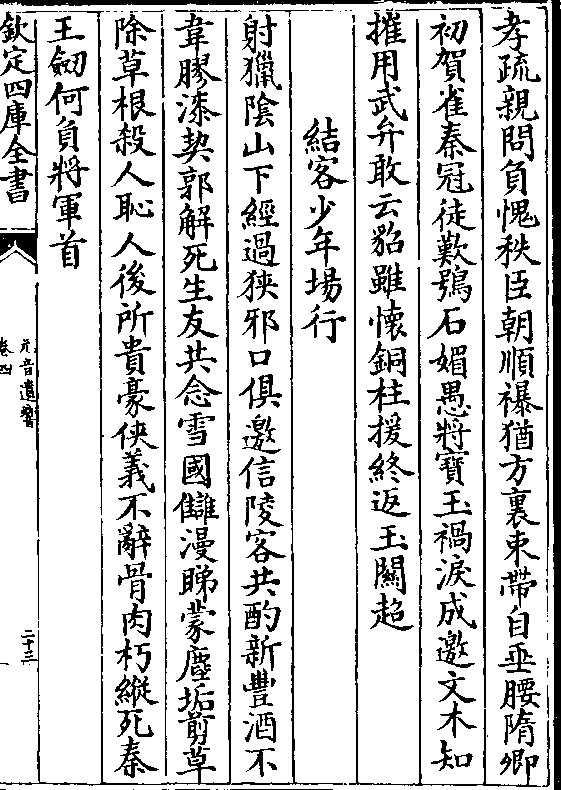 孝疏親問負愧秩臣朝順襮猶方裏束帶自垂腰隋卿
初賀雀秦冠徒歎鴞石媚愚將寶玉禍淚成邀文木知
摧用武弁敢云貂雖懷銅柱援終返玉關超
結客少年場行
射獵陰山下經過狹邪口俱邀信陵客共酌新豐酒不
韋膠漆契郭解死生友共念雪國讎漫睇蒙塵垢剪草
除草根殺人恥人後所貴豪俠義不辭骨肉朽縱死秦
王劒何負將軍首
欽定四庫全書
元音遺響
卷四
二十三